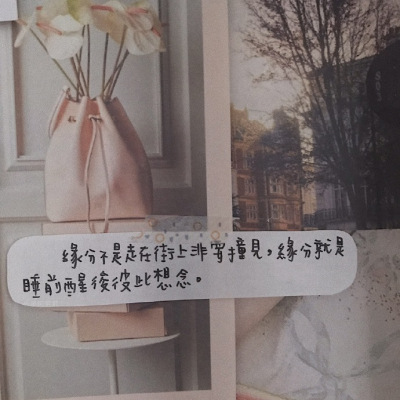 緣分不是走在街上非要撞見，緣分就是
睡前醒後彼此想念。